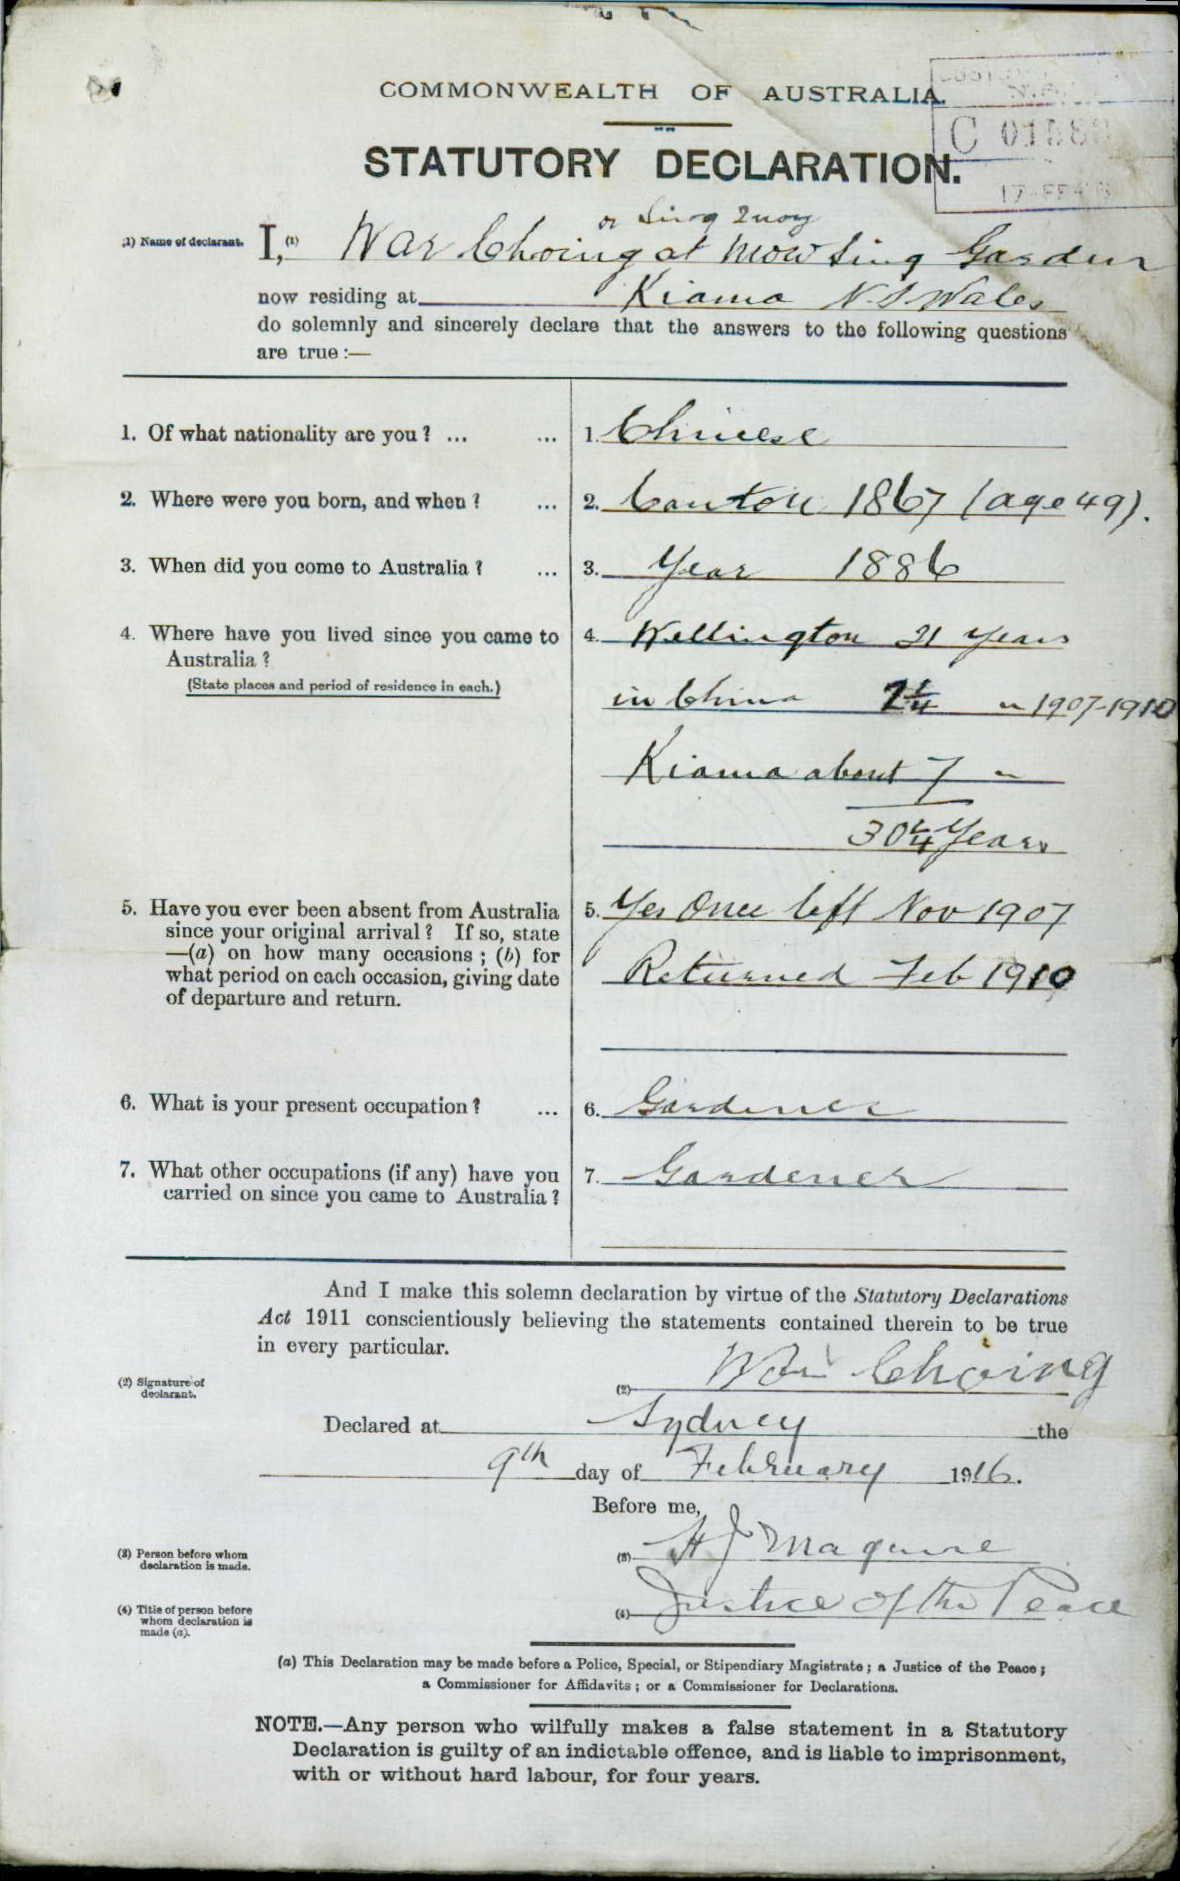 COMMONWEALTH OF AUSTRALIA.
C 0158
17 FE
STATUTORY DECLARATION.
or Sing Quoy
(1) Name of declarant. I, (1) War Choing at Mow Sing Garden
now residing at Kiama N.S Wales
do solemnly and sincerely declare that the answers to the following questions
are true :—
1. Of what nationality are you ? ... ... 1. Chinese
2. Where were you born, and when ? ... 2. Canton 1867 (age 49).
3. When did you come to Australia ? ... 3. Year 1886
4. Where have you lived since you came to 4. Wellington 21 years
Australia ?
(State places and period of residence in each.)
in China 2¼ " 1907-1910
Kiama about 7 "
30¼ Years
5. Have you ever been absent from Australia 5. Yes Once left Nov 1907
since your original arrival ? If so, state
—(a) on how many occasions ; (b) for
what period on each occasion, giving date Returned Feb 1910
of departure and return.
6. What is your present occupation ? ... 6. Gardener
7. What other occupations (if any) have you 7. Gardener
carried on since you came to Australia ?
And I make this solemn declaration by virtue of the Statutory Declarations
Act 1911 conscientiously believing the statements contained therein to be true
in every particular.
(2) Signature of declarant. (2) War Choing
Declared at Sydney the
9th day of February 1916.
Before me,
(3) Person before whom declaration is made. (3) H J Maguire
(4) Title of person before whom declaration is made (a). (4) Justice of the Peace
(a) This Declaration may be made before a Police, Special, or Stipendiary Magistrate ; a Justice of the Peace ;
a Commissioner for Affidavits ; or a Commissioner for Declarations.
NOTE.—Any person who wilfully makes a false statement in a Statutory
Declaration is guilty of an indictable offence, and is liable to imprisonment,
with or without hard labour, for four years.